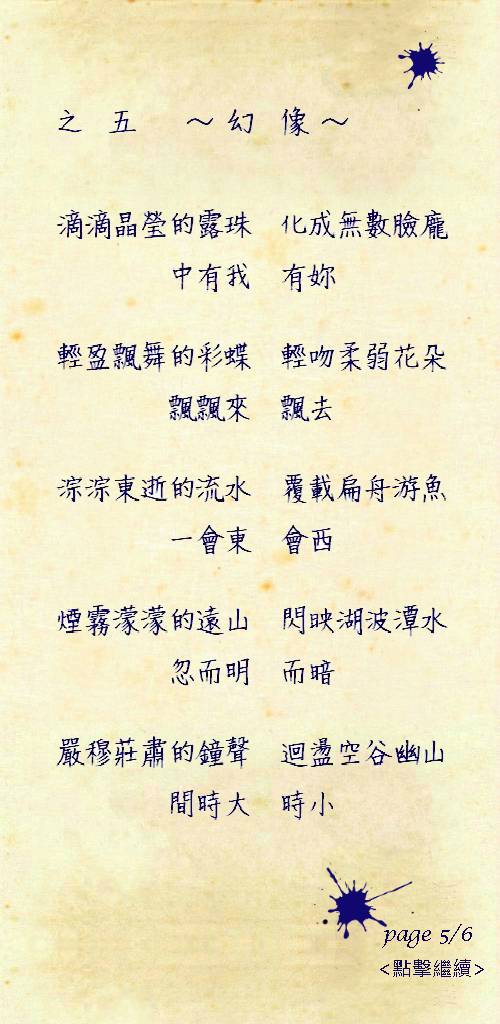 之五　～幻像～
滴滴晶瑩的露珠　化成無數臉龐
中有我　有妳
輕盈飄舞的彩蝶　輕吻柔弱花朵
飄飄來　飄去
淙淙東逝的流水　覆載扁舟游魚
一會東　會西
煙霧濛濛的遠山　閃映湖波潭水
忽而明　而暗
嚴穆莊肅的鐘聲　迴盪空谷幽山
間時大　時小
page 5/6
<點擊繼續>